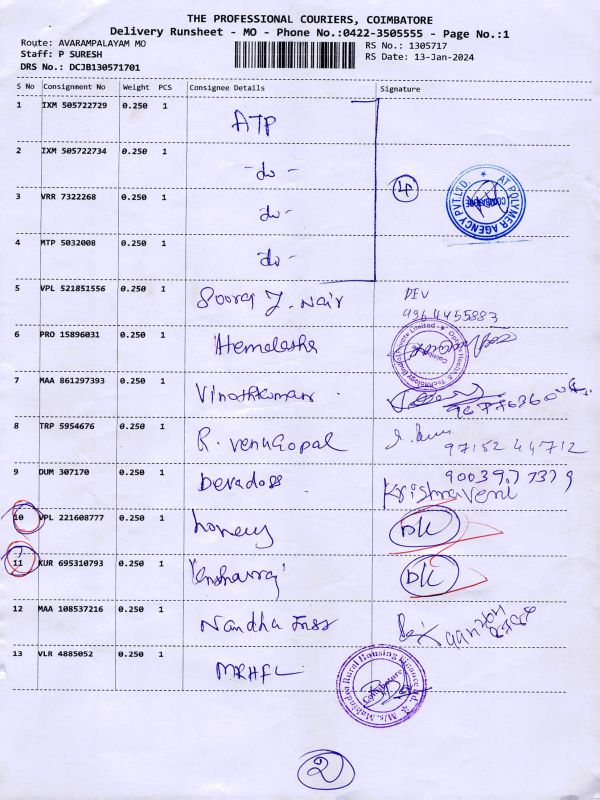 THE PROFESSIONAL COURIERS, COIMBATORE
Delivery Runsheet - MO - Phone No.:0422-3505555 - Page No.:1
Route: AVARAMPALAYAM MO
Staff: P SURESH
DRS No.: DCJB130571701
RS No.: 1305717
RS Date: 13-Jan-2024
S No Consignment No Weight PCS Consignee Details Signature
1 IXM 505722729 0.250 1 ATP
2 IXM 505722734 0.250 1 - do -
3 VRR 7322268 0.250 1 do -
4 MTP 5032008 0.250 1 do -
4
AT POLYMER AGENCY PVT.LTD
COIMBATORE
5 VPL 521851556 0.250 1 Sooraj J. Nair DEV
9364455883
6 PRO 15896031 0.250 1 Hemalatha
Coimbatore
7 MAA 861297393 0.250 1 Vinothkumar
8 TRP 5954676 0.250 1 R. venuGopal
97152 44712
9 DUM 307170 0.250 1 Devadoss
Krishnaveni
10 VPL 221608777 0.250 1 DK
11 KUR 695310793 0.250 1 DK
12 MAA 108537216 0.250 1 Nandha
13 VLR 4885052 0.250 1 MRHFL
M/s. Mahindra Rural Housing Finance Ltd.
Coimbatore
2